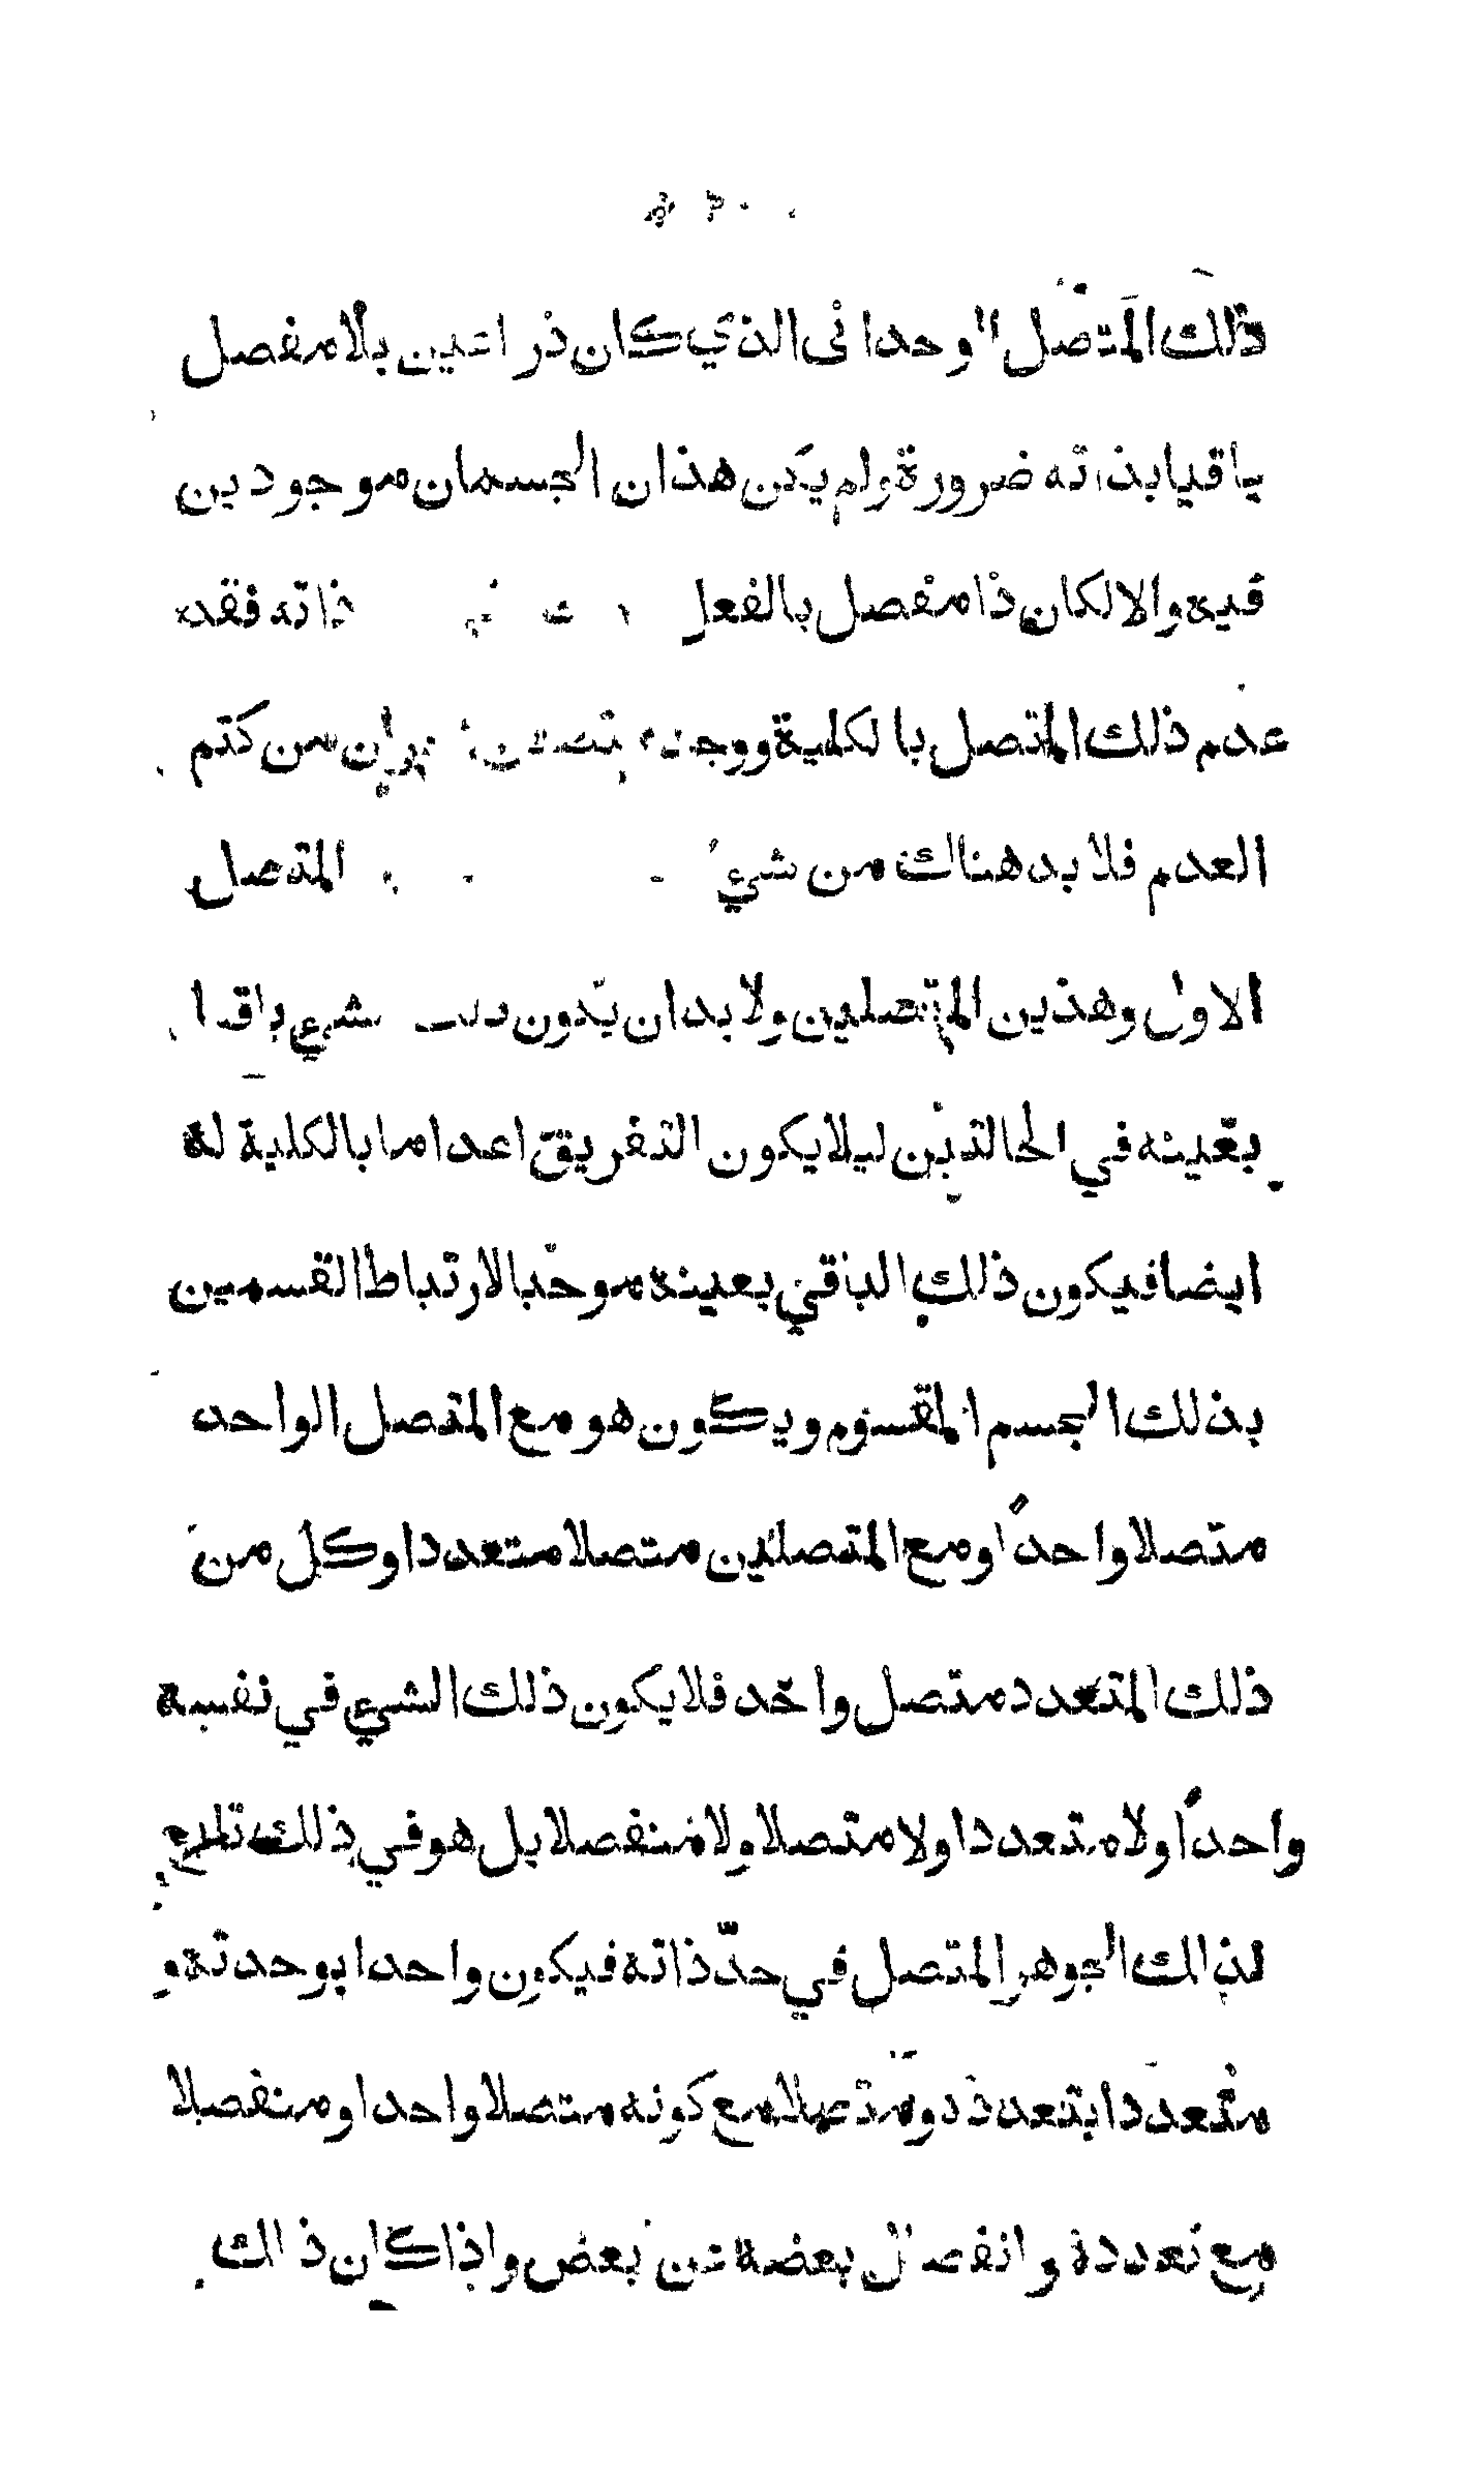 ذلك المتصل الوحداني الذي كان ذراعين بلا مفصل
باقيا بذاته ضرورة ولم يكن هذان الجسمان موجودين
فيه والا لكان ذا مفصل بالفعل ذاته فقد
عدم ذلك المتصل بالكلية ووجد من كتم
العدم فلا بد هناك من شيء المتصل
الاول وهذين المتصلين ولا بد ان يكون ذلك الشيء باقيا
بعينه في الحالتين ليلا يكون التفريق اعداما بالكلية له
ايضا فيكون ذلك الباقي بعينه موجبا لارتباط القسمين
بذلك الجسم المقسوم ويكون هو مع المتصل الواحد
متصلا واحدًا ومع المتصلين متصلا متعددا وكل من
ذلك المتعدد متصل واحد فلا يكون ذلك الشيء في نفسه
واحدًا ولا متعددا ولا متصلا ولا منفصلا بل هو في ذلك تابع
لذالك الجوهر المتصل في حدّ ذاته فيكون واحدا بوحدته و
متعددا بتعدده ومتصلا مع كونه متصلا واحدا ومنفصلا
مع تعدده وانفصال بعضه عن بعض واذا كان ذالك